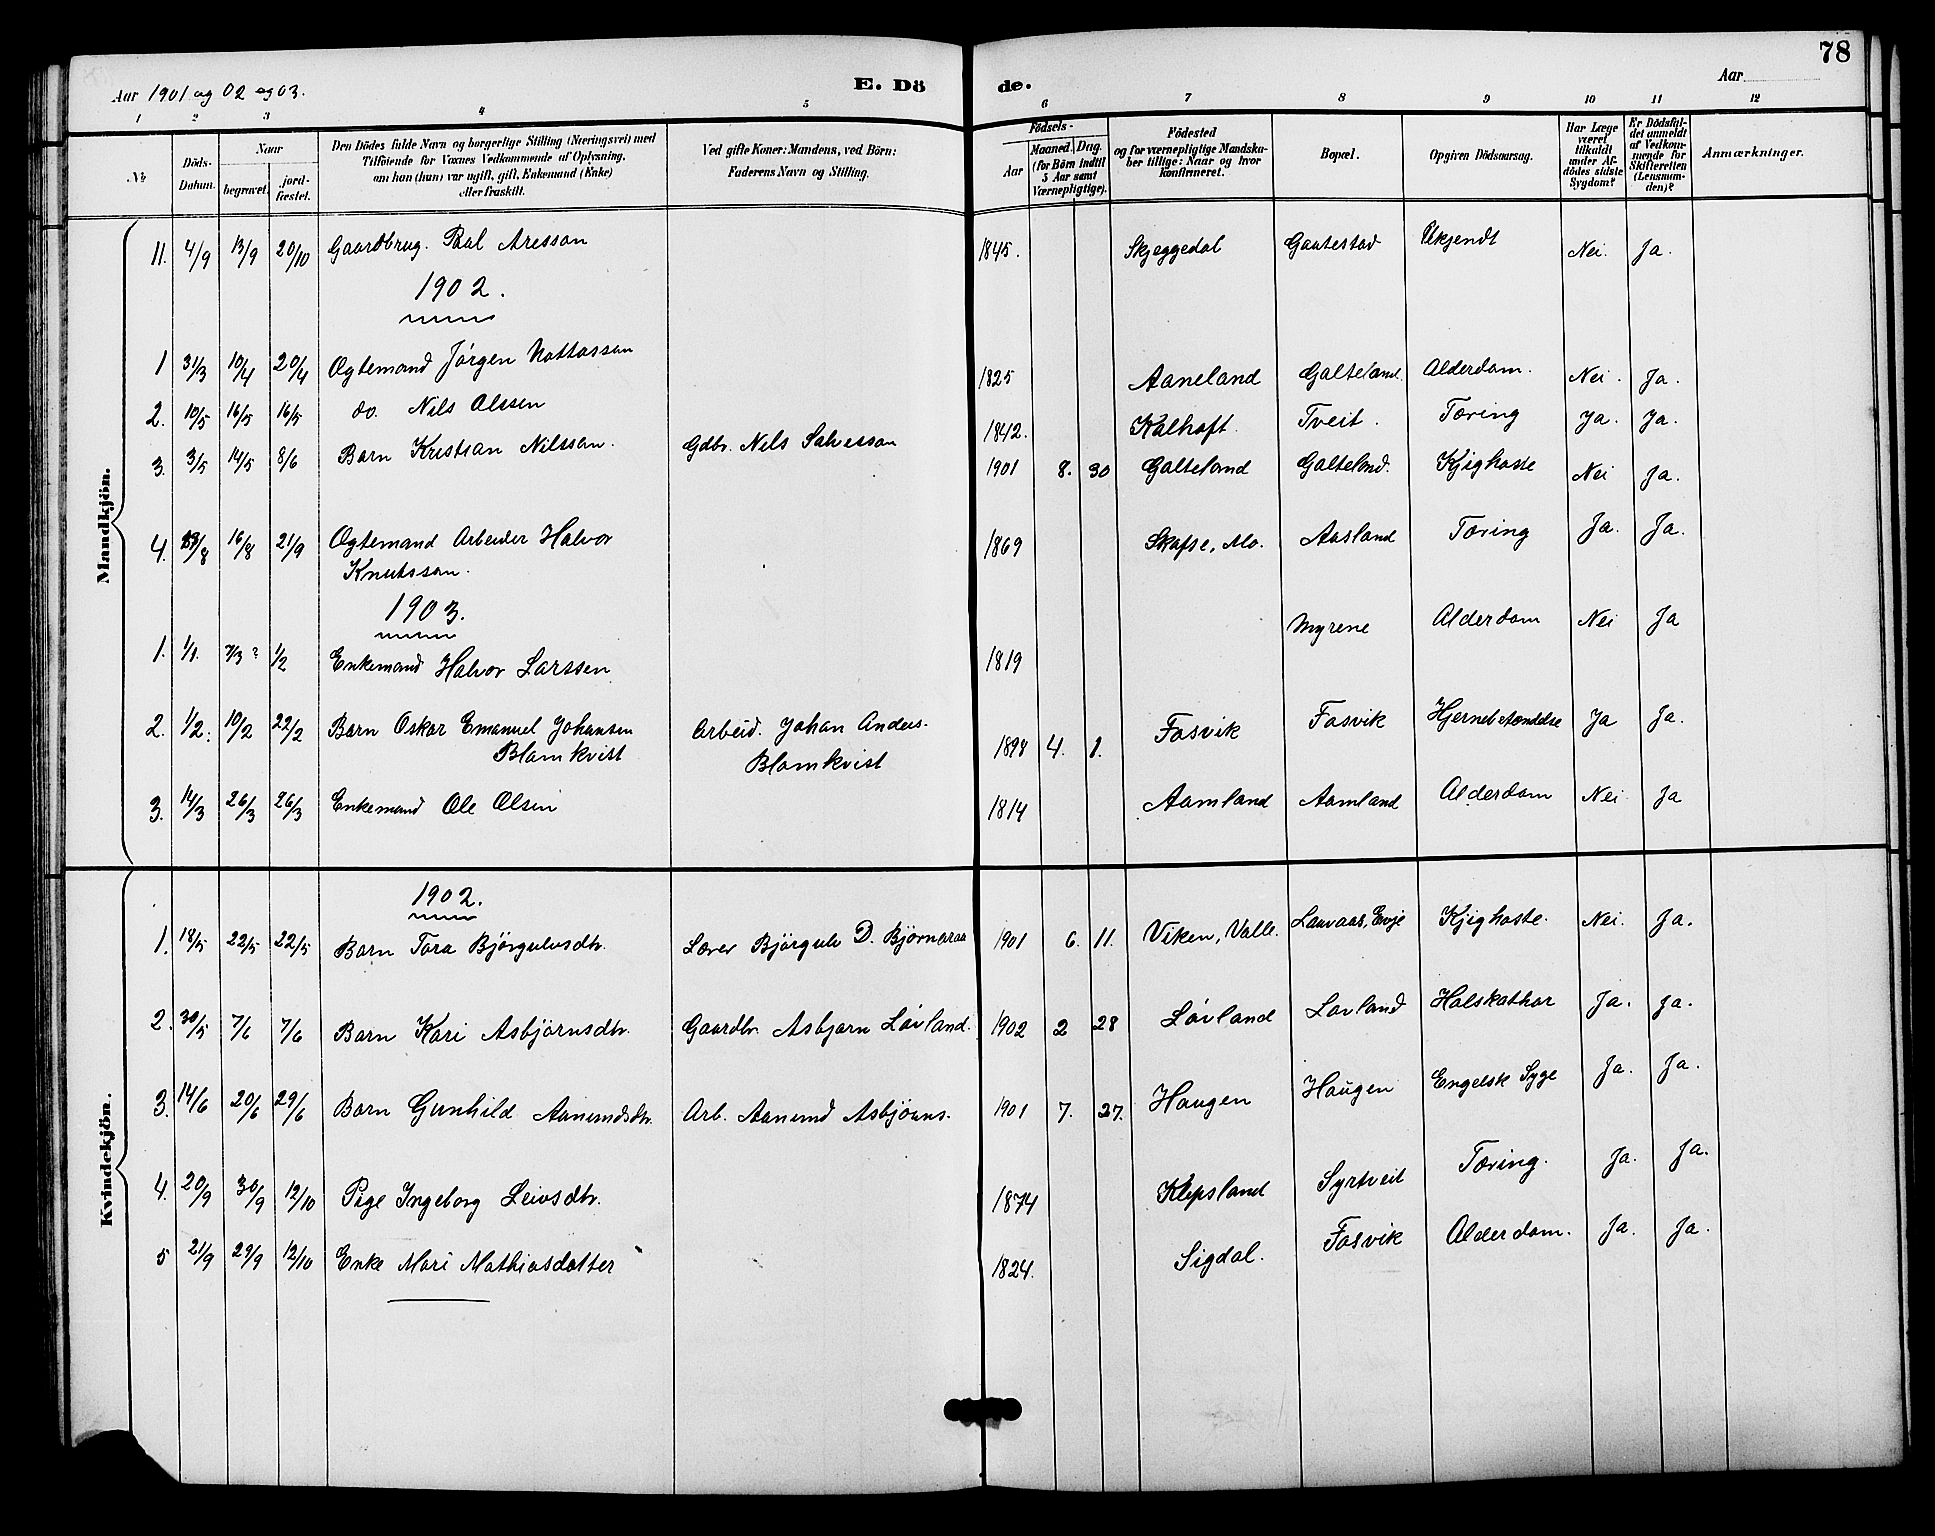 78
Aar 1901 og 02 og 03.
E. Dö de.
Aar
1 2 3 4 5 6 7 8 9 10 11 12
№
Döds-Datum.
Naar
begravet.
jord-fæstet.
Den Dödes fulde Navn og borgerlige Stilling (Næringsvei) med
Tilföiende for Voxnes Vedkommende af Oplysning,
om han (hun) var ugift, gift, Enkemand (Enke)
eller fraskilt.
Ved gifte Koner: Mandens, ved Börn:
Faderens Navn og Stilling.
Födsels-
Aar
Maaned. Dag.
(for Börn indtil
5 Aar samt
Værnepligtige).
Födested
og for værnepligtige Mandska-
ber tillige: Naar og hvor
konfirmeret.
Bopæl.
Opgiven Dödsaarsag.
Har Læge
været
tilkaldt
under Af-
dödes sidste
Sygdom?
Er Dödsfal-
det anmeldt
af Vedkom-
mende for
Skifteretten
(Lensman-
den)?
Anmærkninger.
Mandkjön.
11. 4/9 13/9 20/10 Gaardbrug. Paal Aresson 1845. Skjeggedal Gautestad Ukjendt Nei. Ja.
1902.
1 31/3 10/4 20/4 Ogtemand Jørgen Nottosson 1825 Aaneland Galteland. Alderdom. Nei. Ja.
2. 10/5 16/5 16/5 do. Nils Olssen 1842. Kalhoft. Tveit. Tæring Ja. Ja.
3. 3/5 14/5 8/6 Barn Kristian Nilsson. Gdbr. Nils Salvesson 1901 8. 30 Galteland Galteland. Kjighoste Nei Ja.
4. 16/8 21/9 Ogtemand Arbeider Halvor 1869 Skafse, Mo. Aasland Tæring Ja. Ja.
Knutsson.
1903.
1. 1/1. 7/3? 1/2 Enkemand Halvor Larssen 1819 Myrene Alderdom Nei Ja
2. 1/2. 10/2 22/2 Barn Oskar Emanuel Johansen Arbeid. Johan Anders. 1898 4. 1. Fosvik Fosvik Hjernebetændelse Ja Ja.
Blomkvist Blomkvist
3. 14/3 26/3 26/3 Enkemand Ole Olsen 1814 Aamland Aamland Alderdom Nei. Ja
Kvindekjön.
1902.
1. 18/5 22/5 22/5 Barn Tora Bjørgulvsdtr. Lærer Bjørgulv D. Bjørnaraa 1901 6. 11. Viken, Valle. Lauvaas, Evje Kjighoste. Nei. Ja.
2. 30/5 7/6 7/6 Barn Kari Asbjørnsdtr. Gaardbr. Asbjørn Løvland. 1902 2 28 Løvland Løvland Halskathar Ja. Ja.
3. 14/6 20/6 29/6 Barn Gunhild Aanundsdtr. Arb. Aanund Asbjørns. 1901 7. 27. Haugen Haugen Engelsk Syge Ja. Ja.
4. 20/9 30/9 12/10 Pige Ingeborg Leivsdtr. 1874 Klepsland Syrtveit Tæring. Ja. Ja.
5 21/9 29/9 12/10 Enke Mari Mathiasdatter 1824. Sigdal. Fosvik Alderdom. Ja. Ja.